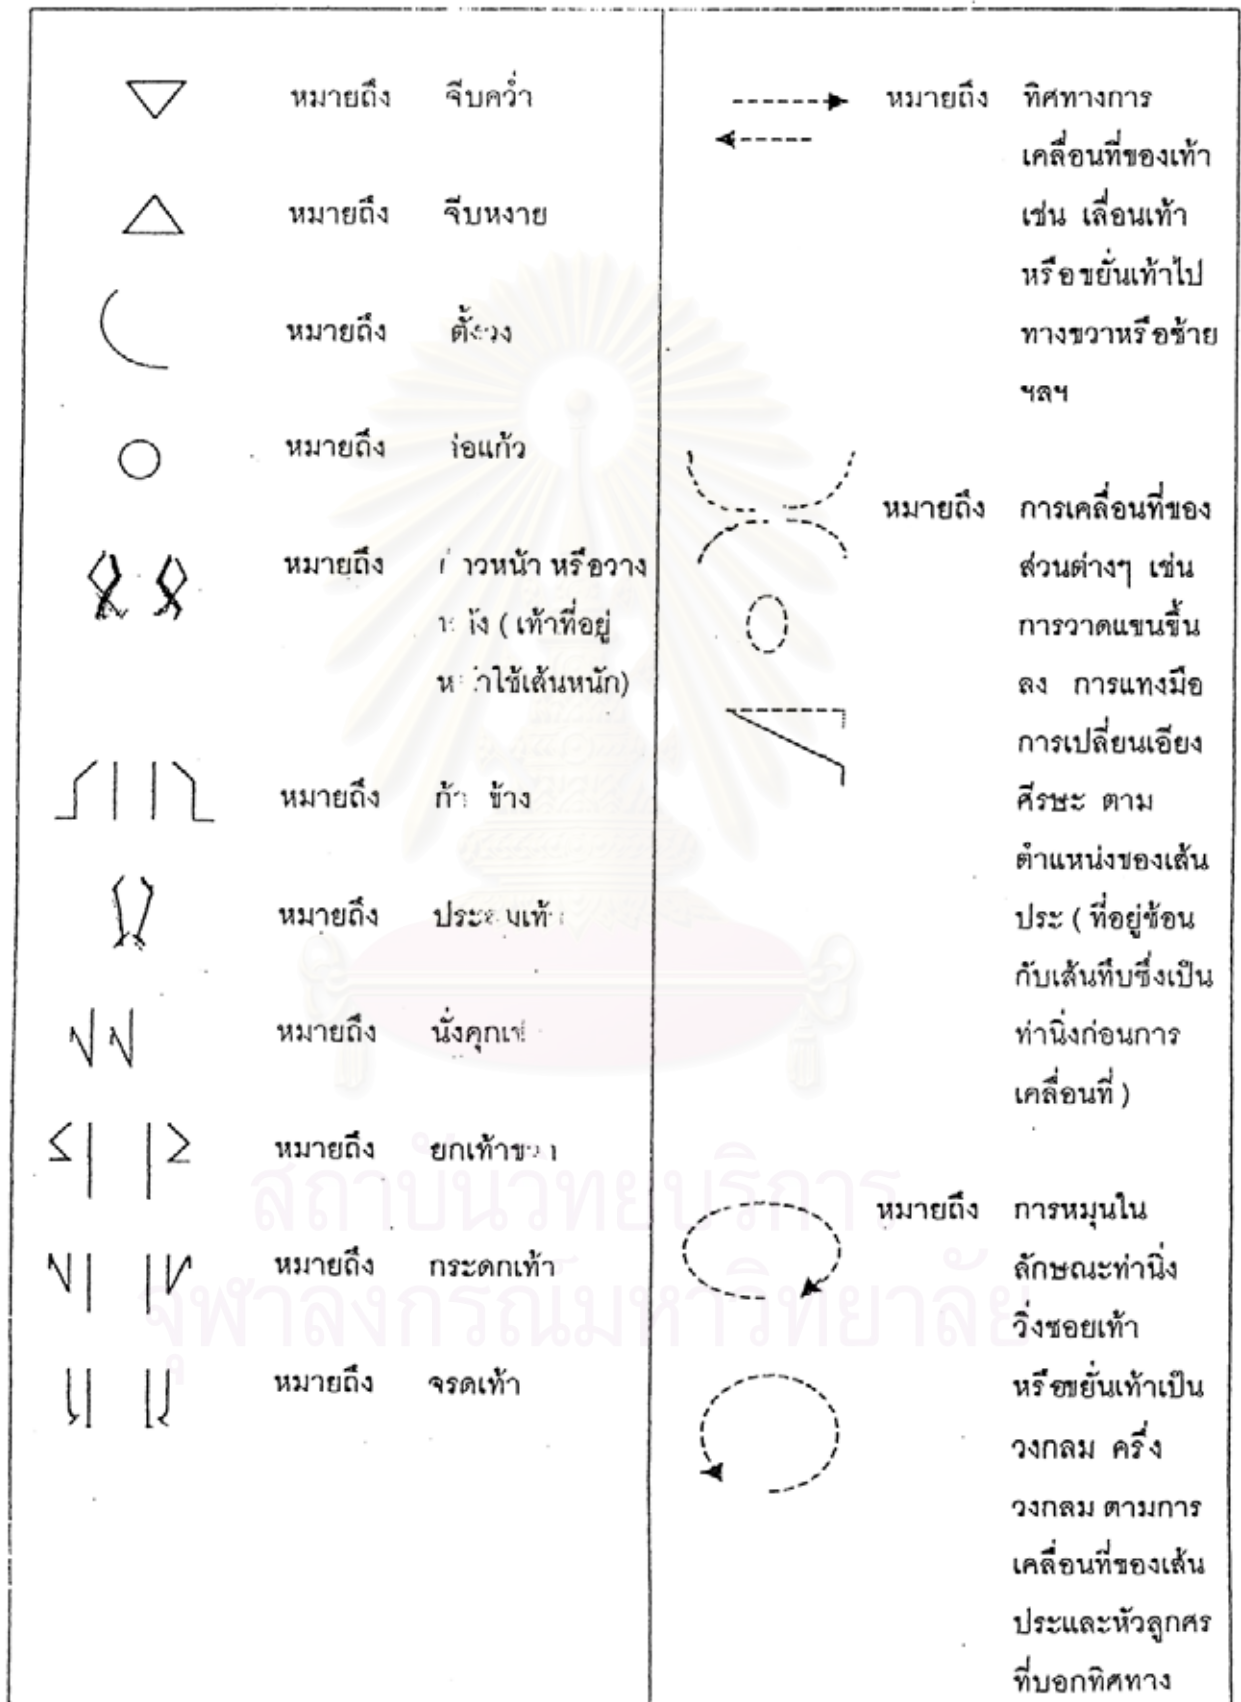 หมายถึง จีบคว่ำ
หมายถึง จีบหงาย
หมายถึง ตั้งวง
หมายถึง ล่อแก้ว
หมายถึง หน้า หรือวาง
( เท้าที่อยู่
ใช้เส้นหนัก)
หมายถึง ข้าง
หมายถึง ประสมเท้า
หมายถึง นั่งคุกเข่
หมายถึง ยกเท้า
หมายถึง กระดกเท้า
หมายถึง จรดเท้า
หมายถึง ทิศทางการ
เคลื่อนที่ของเท้า
เช่น เลื่อนเท้า
หรือขยั่นเท้าไป
ทางขวาหรือซ้าย
ฯลฯ
หมายถึง การเคลื่อนที่ของ
ส่วนต่างๆ เช่น
การวาดแขนขึ้น
ลง การแทงมือ
การเปลี่ยนเอียง
ศีรษะ ตาม
ตำแหน่งของเส้น
ประ ( ที่อยู่ซ้อน
กับเส้นทึบซึ่งเป็น
ท่านิ่งก่อนการ
เคลื่อนที่ )
หมายถึง การหมุนใน
ลักษณะท่านิ่ง
วิ่งซอยเท้า
หรือขยั่นเท้าเป็น
วงกลม ครึ่ง
วงกลม ตามการ
เคลื่อนที่ของเส้น
ประและหัวลูกศร
ที่บอกทิศทาง
สถาบันวิทยบริการ
จุฬาลงกรณ์มหาวิทยาลัย